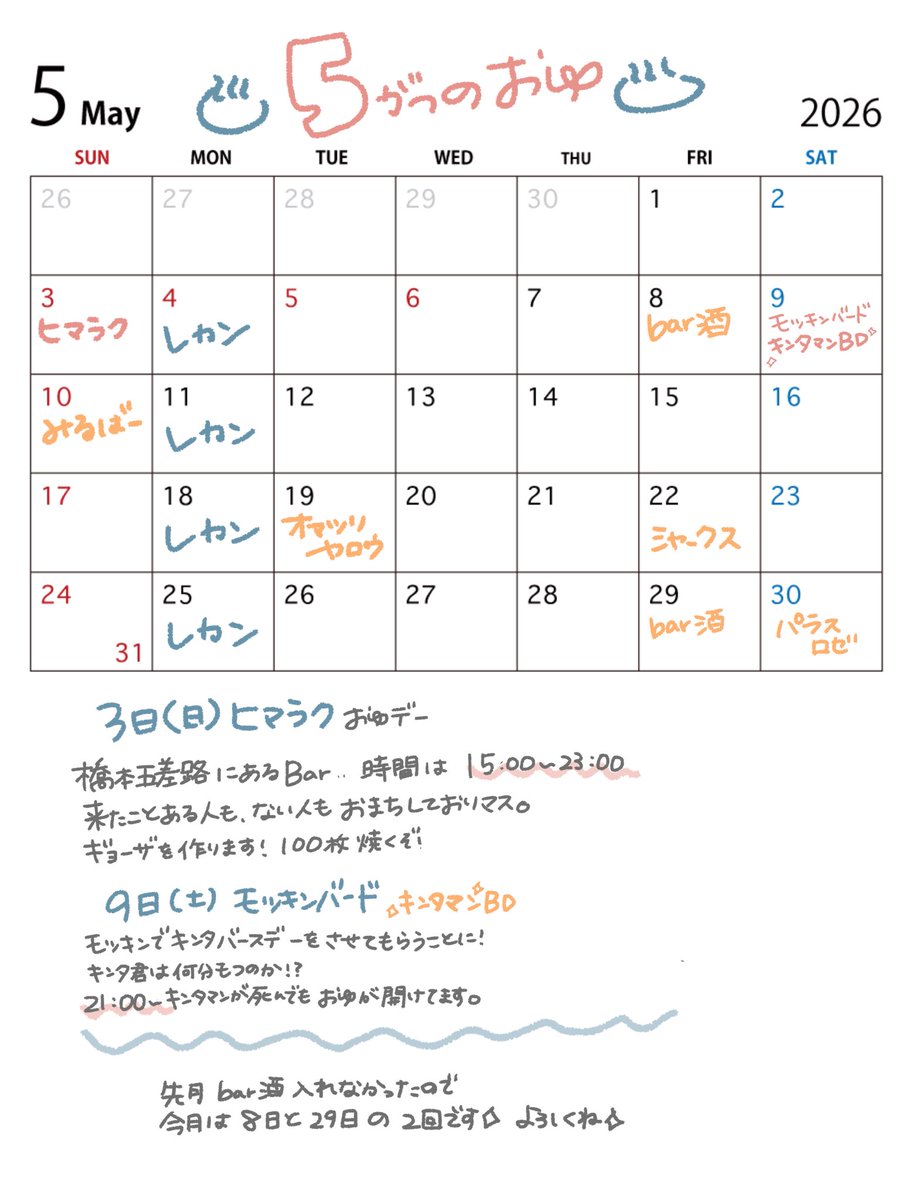 5 May
5がつのおゆ
2026
SUN MON TUE WED THU FRI SAT
26 27 28 29 30 1 2
3 4 5 6 7 8 9
ヒマラク レカン bar酒 モッキンバード
キンタマンBD
10 11 12 13 14 15 16
みるばー レカン
17 18 19 20 21 22 23
レカン オマツリ シャークス
ヤロウ
24 25 26 27 28 29 30
レカン bar酒 パラス
ロゼ
31
3日(日)ヒマラク おゆデー
橋本五差路にあるBar.. 時間は 15:00~23:00
来たことある人も、ない人も おまちしておりマス。
ギョーザを作ります! 100枚焼くぞ!
9日(土) モッキンバード キンタマンBD
モッキンでキンタバースデーをさせてもらうことに!
キンタ君は何分もつのか!?
21:00~キンタマンが死んでも おゆが開けてます。
先月 bar酒 入れなかったので
今月は 8日と29日の 2回です☆ よろしくね☆